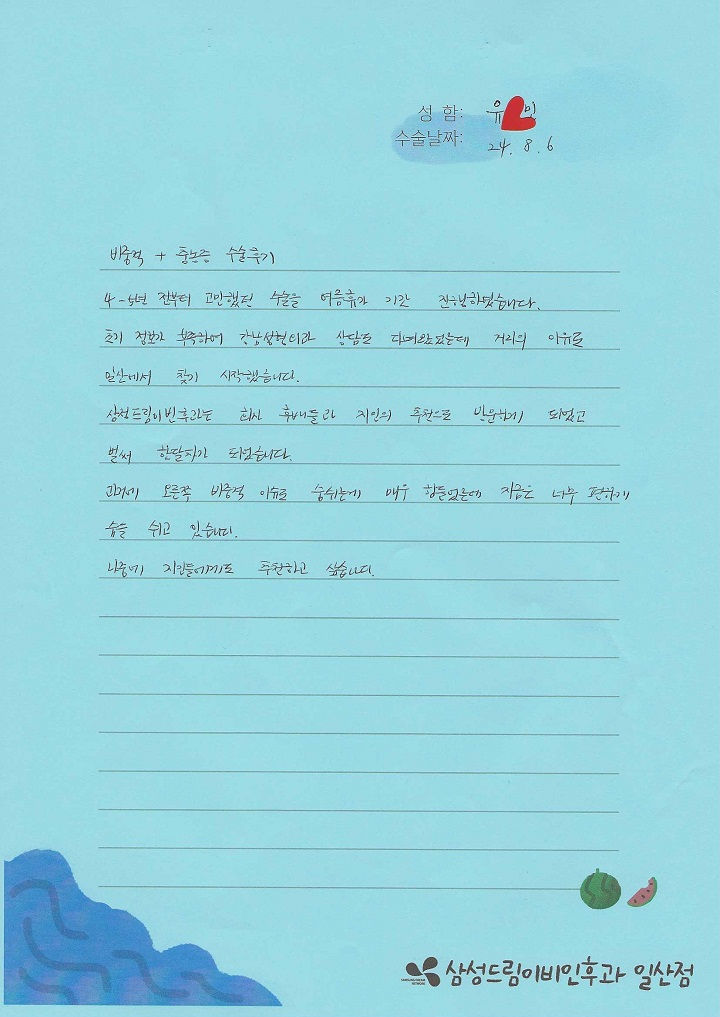 성 함: 유 민
수술날짜: 24. 8. 6
비중격 + 충농증 수술후기
4-5년 전부터 고민했던 수술을 여름휴가 기간 진행하였습니다.
초기 정보가 부족하여 강남 상담도 다녀왔었는데 거리의 이유로
일산에서 찾기 시작했습니다.
삼성드림이빈후과는 회사 후배들과 지인의 추천으로 방문하게 되었고
벌써 한달차가 되었습니다.
과거에 오른쪽 비중격 이슈로 숨쉬는게 매우 힘들었는데 지금은 너무 편하게
숨을 쉬고 있습니다.
나중에 지인들에게도 추천하고 싶습니다.
SAMSUNG DREAM NETWORK
삼성드림이비인후과 일산점